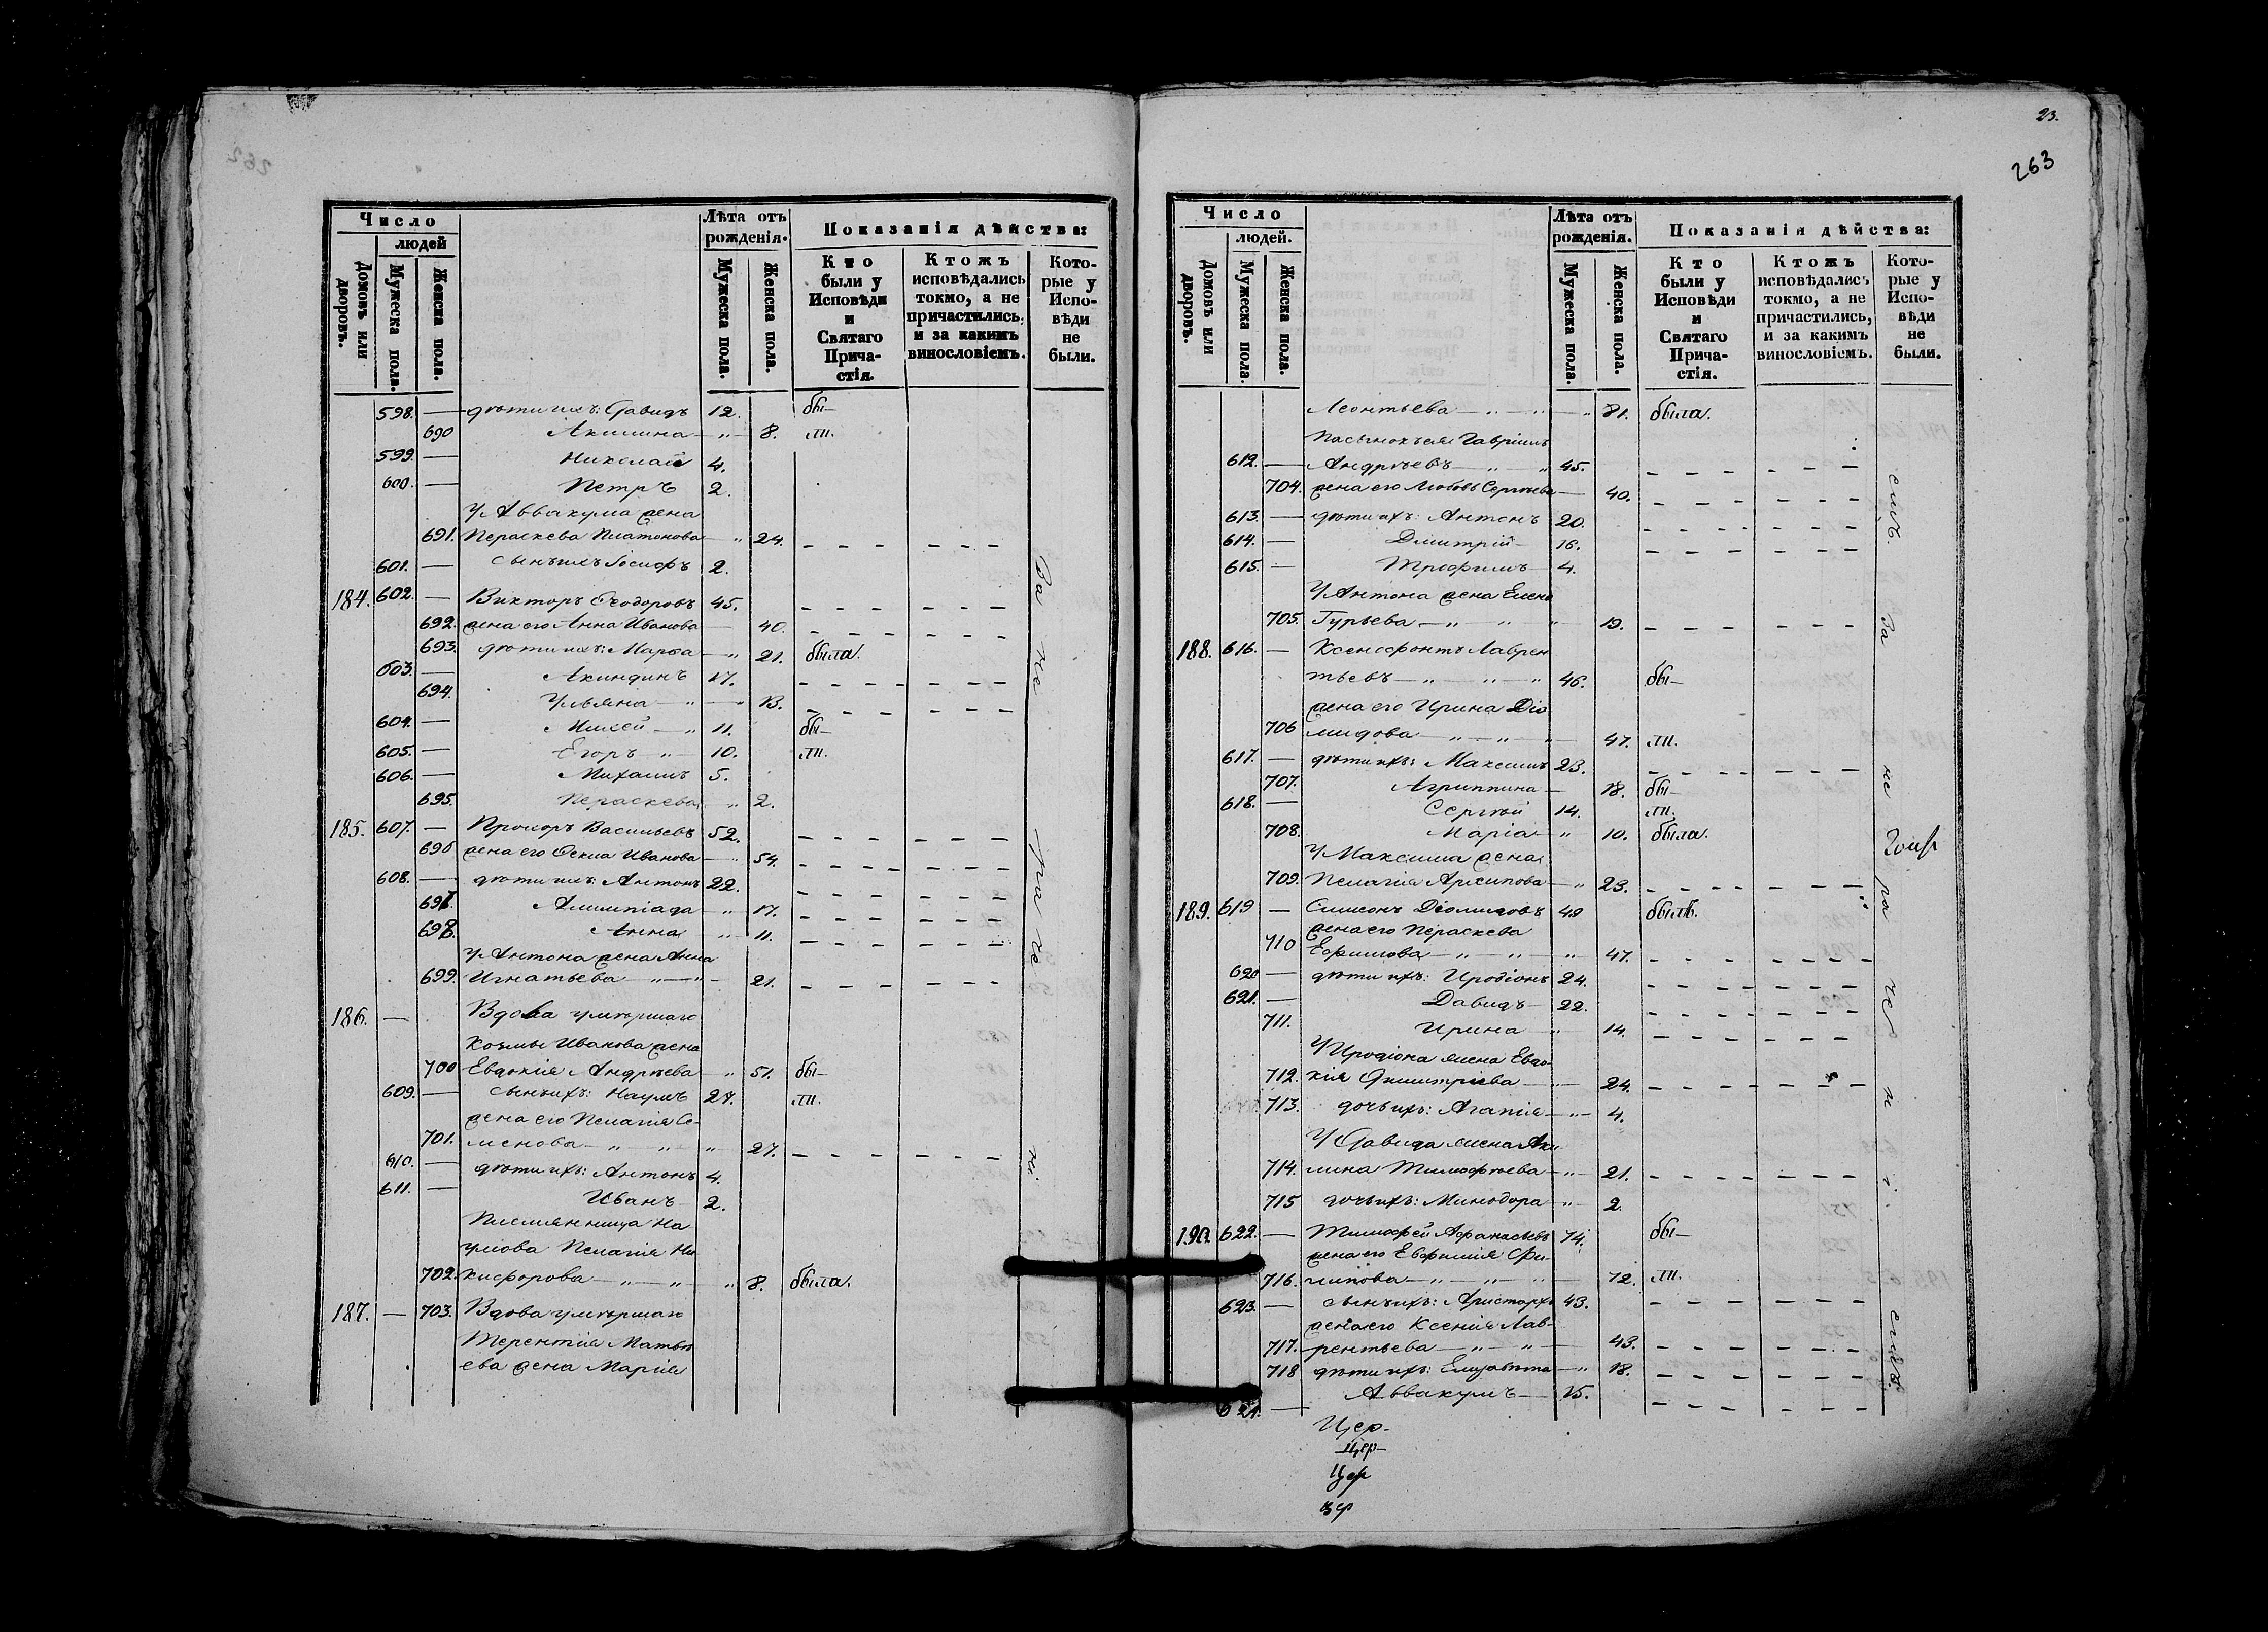 Число
людей
Домовъ или дворовъ.
Мужеска пола.
Женска пола.
Лѣта отъ рожденія.
Мужеска пола.
Женска пола.
Показанія дѣйства:
Кто были у Исповѣди и Святаго Причастія.
Ктожъ исповѣдались токмо, а не причастились, и за какимъ винословіемъ.
Которые у Исповѣди не были.
598. — дѣти ихъ: Давидъ 12. бы-
690 Акилина — " — 8. ли.
599. — Николай 4.
600. — Петръ 2.
У Аввакума жена
691. Пераскева Платонова — " 24. — — — — — —
601. — сынъ ихъ Іосифъ 2.
184. 602. — Викторъ Ѳеодоровъ 45. — — — — — —
692. жена его Анна Иванова — 40. — — — — — —
693. дѣти ихъ: Марѳа — " 21. была.
603. — Акиндинъ 17. — — — — — —
694. Ульяна — " — " 13. — — — — — —
604. — Моисей — " 11. бы-
605. — Егоръ — " — 10. ли.
606. — Михаилъ 5.
695. Пераскева " 2.
185. 607. — Прохоръ Васильевъ 52. — — — — — —
696 жена его Ѳекла Иванова — " 54. — — — — — —
608. — дѣти ихъ: Антонъ 22. — — — — — —
697. Алимпіада — " — 17. — — — — — —
698. Анна — " — 11. — — — — — —
У Антона жена Анна
699. Игнатьева — " — " — 21. — — — — — —
186. — Вдова умершаго
Козмы Иванова жена
700 Евдокія Андрѣева — " 51. бы-
609. — сынъ ихъ: Наумъ 27. ли.
жена его Пелагія Се-
701. менова — " — " — " 27. — — — — — —
610. — дѣти ихъ: Антонъ 4.
611. — Иванъ 2.
Племянница На
умова Пелагія Ни
702. кифорова — " — " — " 8. была.
187. — 703. Вдова умершаго
Терентія Матвѣ
ева жена Марія
За не ра че ні
23.
263
Число
людей.
Домовъ или дворовъ.
Мужеска пола.
Женска пола.
Лѣта отъ рожденія.
Мужеска пола.
Женска пола.
Показанія дѣйства:
Кто были у Исповѣди и Святаго Причастія.
Ктожъ исповѣдались токмо, а не причастились, и за какимъ винословіемъ.
Которые у Исповѣди не были.
Леонтьева — " — " — " 81. была.
Пасынокъ ея Гавріилъ
612. — Андрѣевъ — " — " 45. — — — — — —
704. жена его Любовь Сергѣева — 40. — — — — — —
613. — дѣти ихъ: Антонъ 20. — — — — — —
614. — Димитрій — 16. — — — — — —
615. — Трофимъ — 4.
У Антона жена Елена
705. Гурьева — " — " — " 19. — — — — — —
188. 616. — Ксенофонтъ Лаврен
тьевъ — " — " — " 46. бы-
жена его Ирина Діо
706 мидова — " — " — " 47. ли.
617. — дѣти ихъ: Максимъ 23. — — — — — —
707. Агриппина — 18. бы-
618. — Сергѣй 14. ли.
708. Марія — " 10. была.
У Максима жена
709. Пелагія Архипова — " 23. — — — — — —
189. 619 — Симеонъ Діомидовъ 49 былъ.
жена его Пераскева
710 Ефимова — " — " — " 47. — — — — — —
620 — дѣти ихъ: Иродіонъ 24. — — — — — —
621. — Давидъ — 22. — — — — — —
711. Ирина " 14. — — — — — —
У Иродіона жена Евдо-
712. кія Димитріева — " — 24. — — — — — —
713. дочь ихъ: Агапія — " — 4.
У Давида жена Аки
714. лина Тимофѣева — " — 21. — — — — — —
715 дочь ихъ: Минодора — " 2.
190. 622. — Тимофей Афанасьевъ 74. бы-
жена его Евфимія Фи-
716. липова — " — " — " — 72. ли.
623. — сынъ ихъ: Аристархъ 43. — — — — — —
жена его Ксенія Лав-
717. рентьева — " — " — 43. — — — — — —
718 дѣти ихъ: Елизавета — " 18. — — — — — —
624. — Аввакумъ — 15. — — — — — —
емъ. За не ра че н і емъ.
Цер-
цер-
Цер
цер